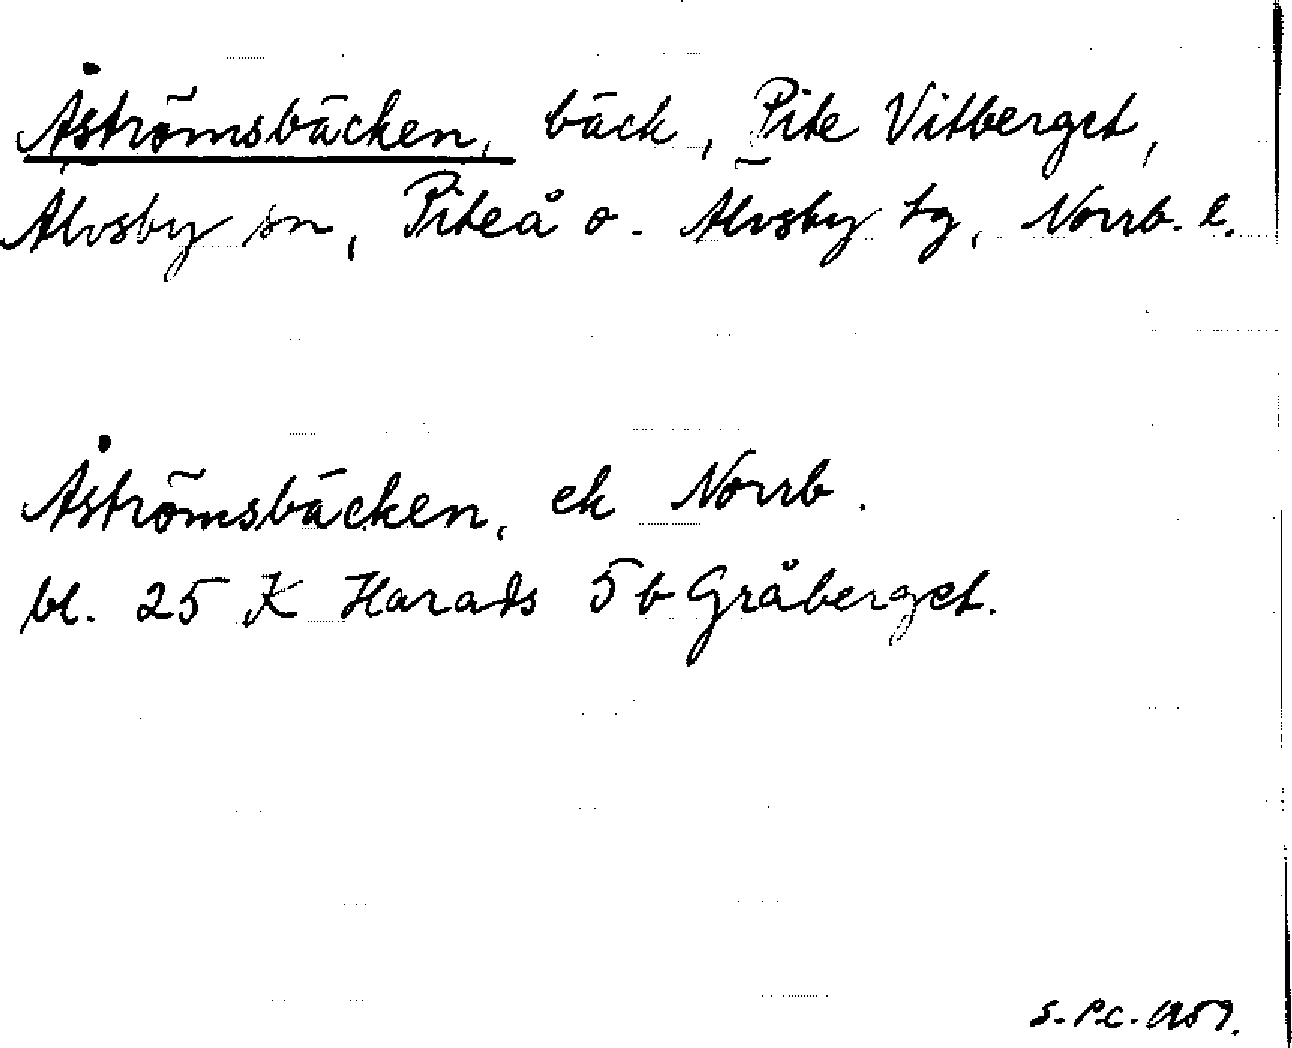 Åströmsbäcken, bäck, Pite Vitberget,
Älvsby sn, Piteå o. Älvsby tg, Norrb. l.
Åströmsbäcken, ek Norrb.
bl. 25 K Harads 5 b Gråberget.
S. P.C. 1959.